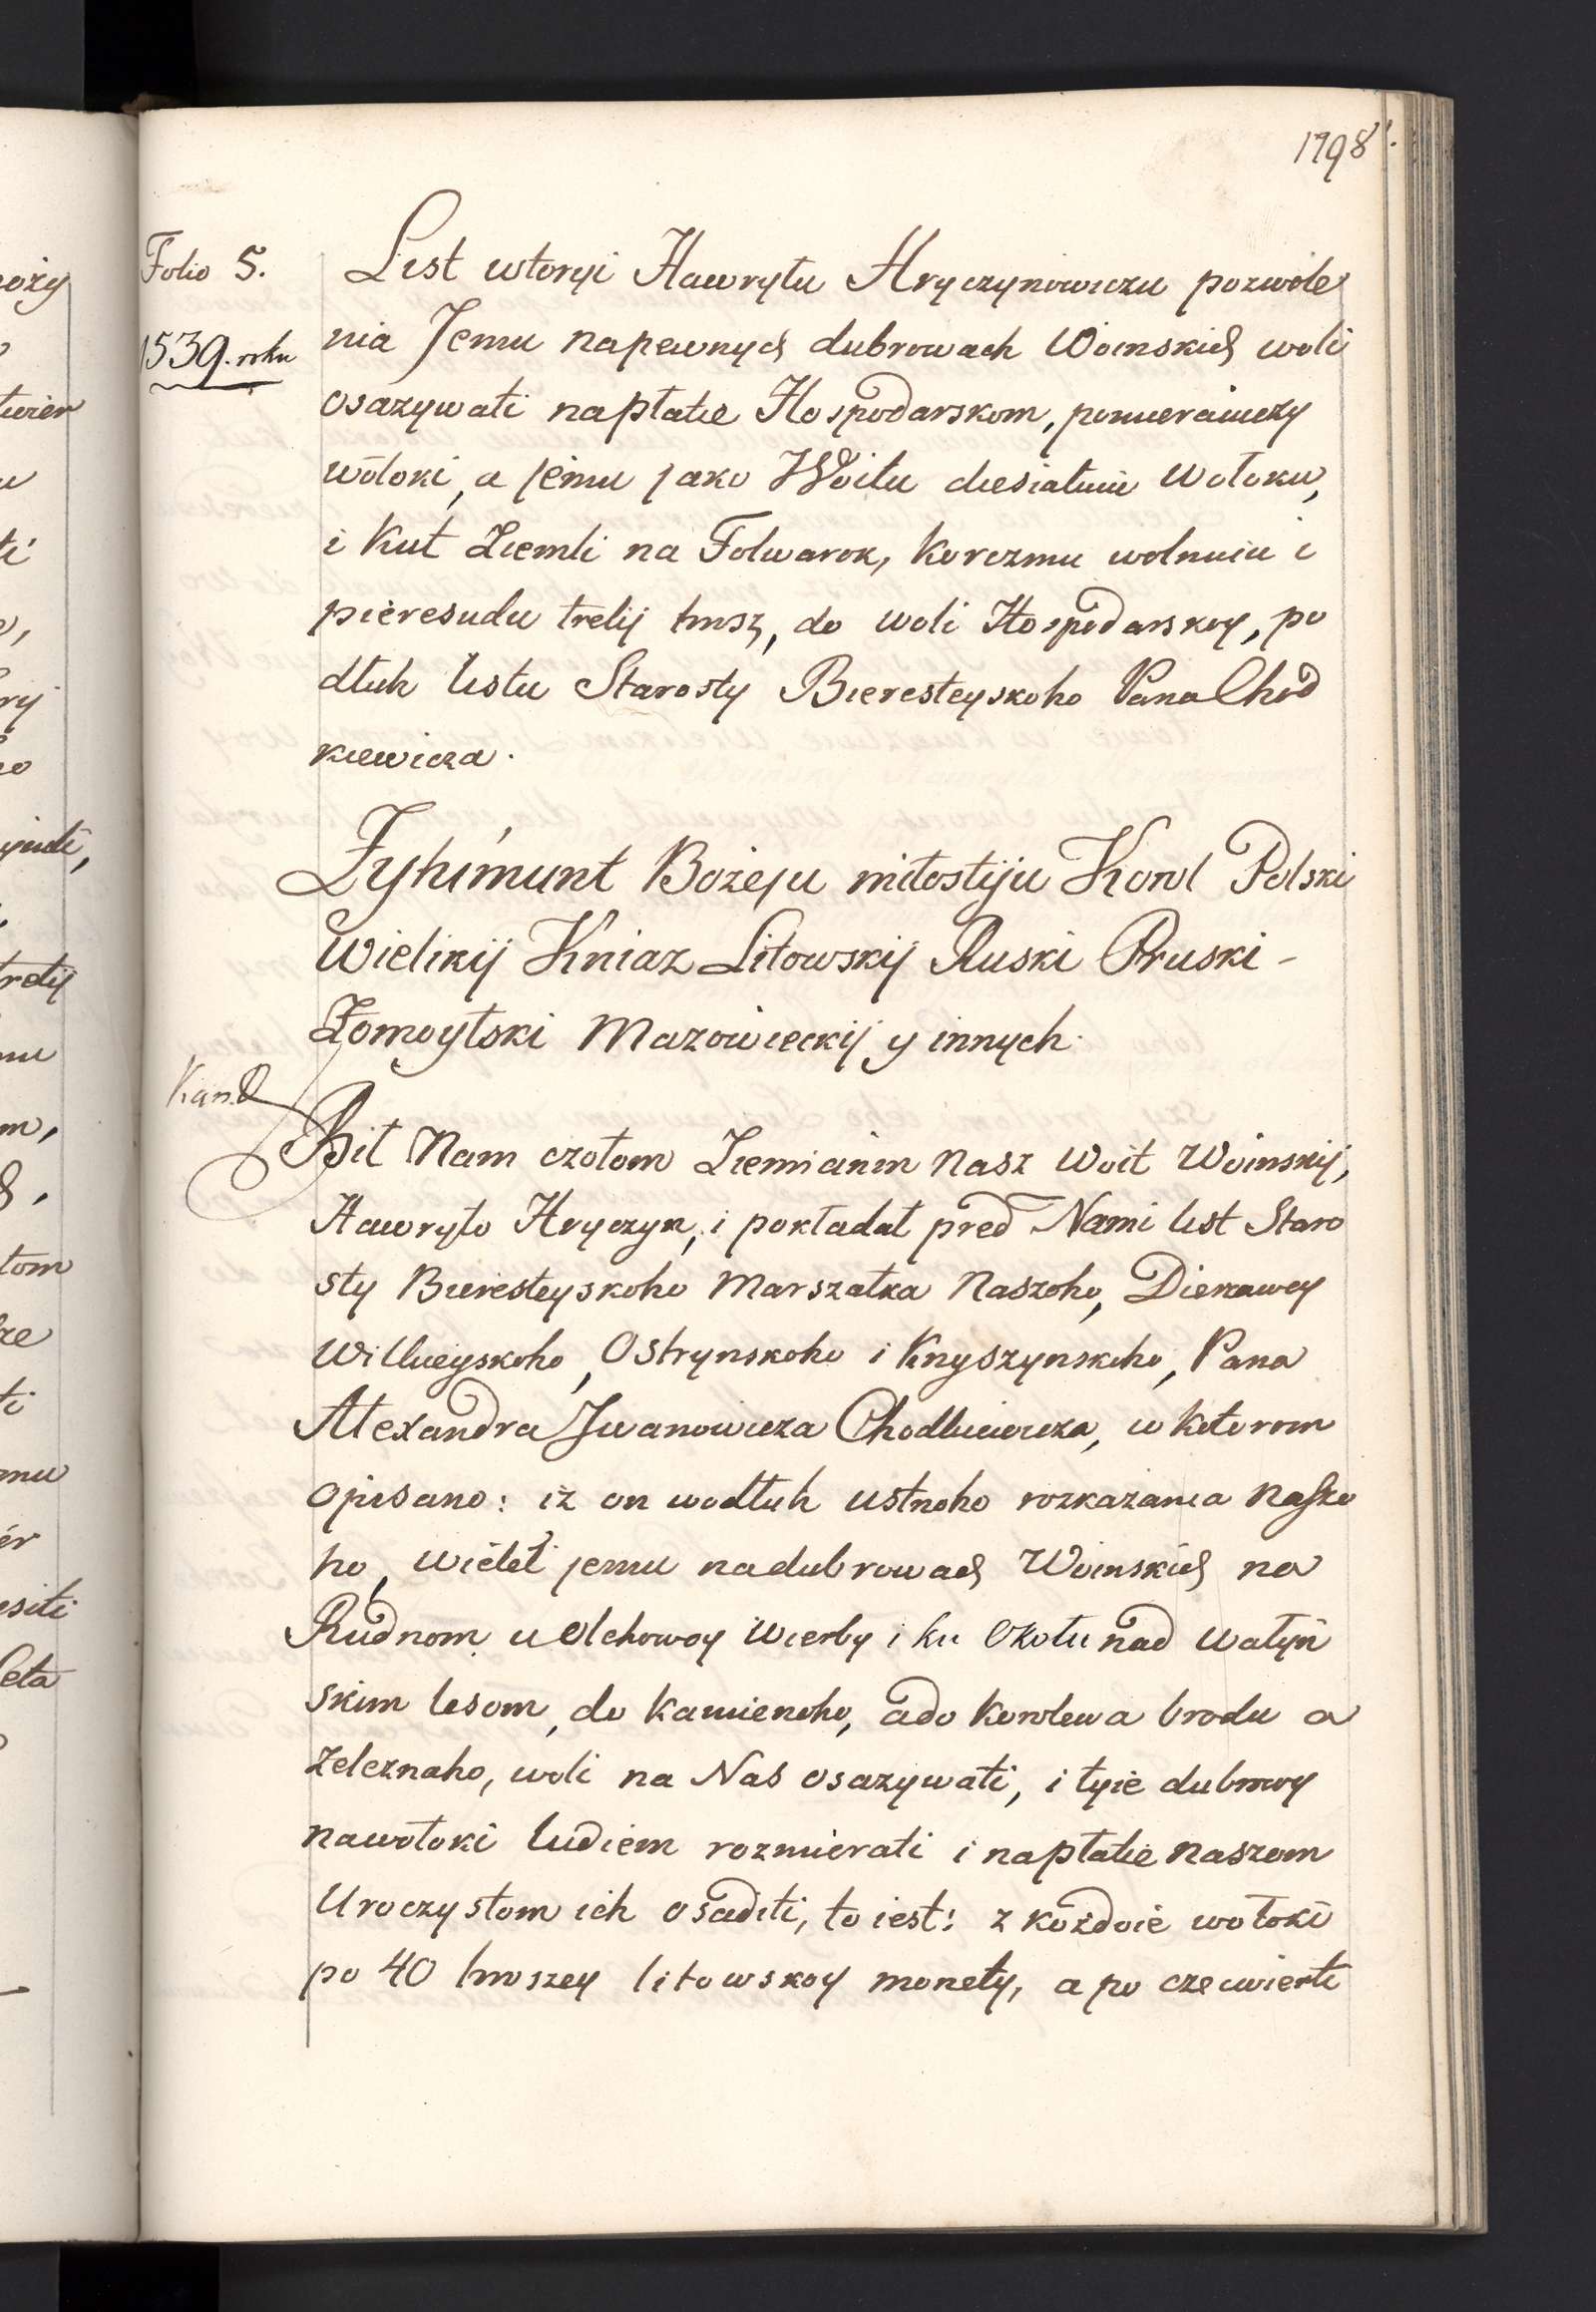 1798.
Folio 5.
1539. roku
List wtoryi Hawryłu Hryczynowiczu pozwole
nia Jemu napewnych dubrowach Woinskich woli
osazywati napłatie Hospodarskom, pomieraiuczy
wołoki, a jemu jako Woitu diesiatuiu Wołoku,
i Kut Ziemli na Folwarok, Korczmu wolnuiu i
pieresudu tretij hrosz, do woli Hospodarskoy, po
dłuh listu Starosty Bieresteyskoho Pana Chod
kiewicza.
Żyhimunt Bożeju miłostiju Korol Polski
Wielikij Kniaz Litowskij Ruski Pruski -
Żomoytski Mazowieckij y innych.
Kan.
Bił Nam czołom Ziemianin Nasz Woit Woinskij,
Hawryło Hryczyn, i pokładał pred Nami list Staro
sty Bieresteyskoho Marszałka Naszoho, Dierzawcy
Wilkieyskoho, Ostrynskoho i Knyszynskoho, Pana
Alexandra Iwanowicza Chodkiewicza, w kotorom
opisano: iż on wodłuh ustnoho rozkazania Naszo
ho, wieleł jemu nadubrowach Woinskich na
Rudnom u Olchowoy Wierby i ku Okołu nad Wałyń
skim lesom, do Kamienoho, ado Korolewa brodu a
Zeleznaho, woli na Nas osazywati, i tyie dubrowy
nawołoki ludiem rozmierati i napłatie naszom
Uroczystom ich osaditi, to iest: z kożdoie wołoki
po 40 hroszey litowskoy monety, a po czecwierti